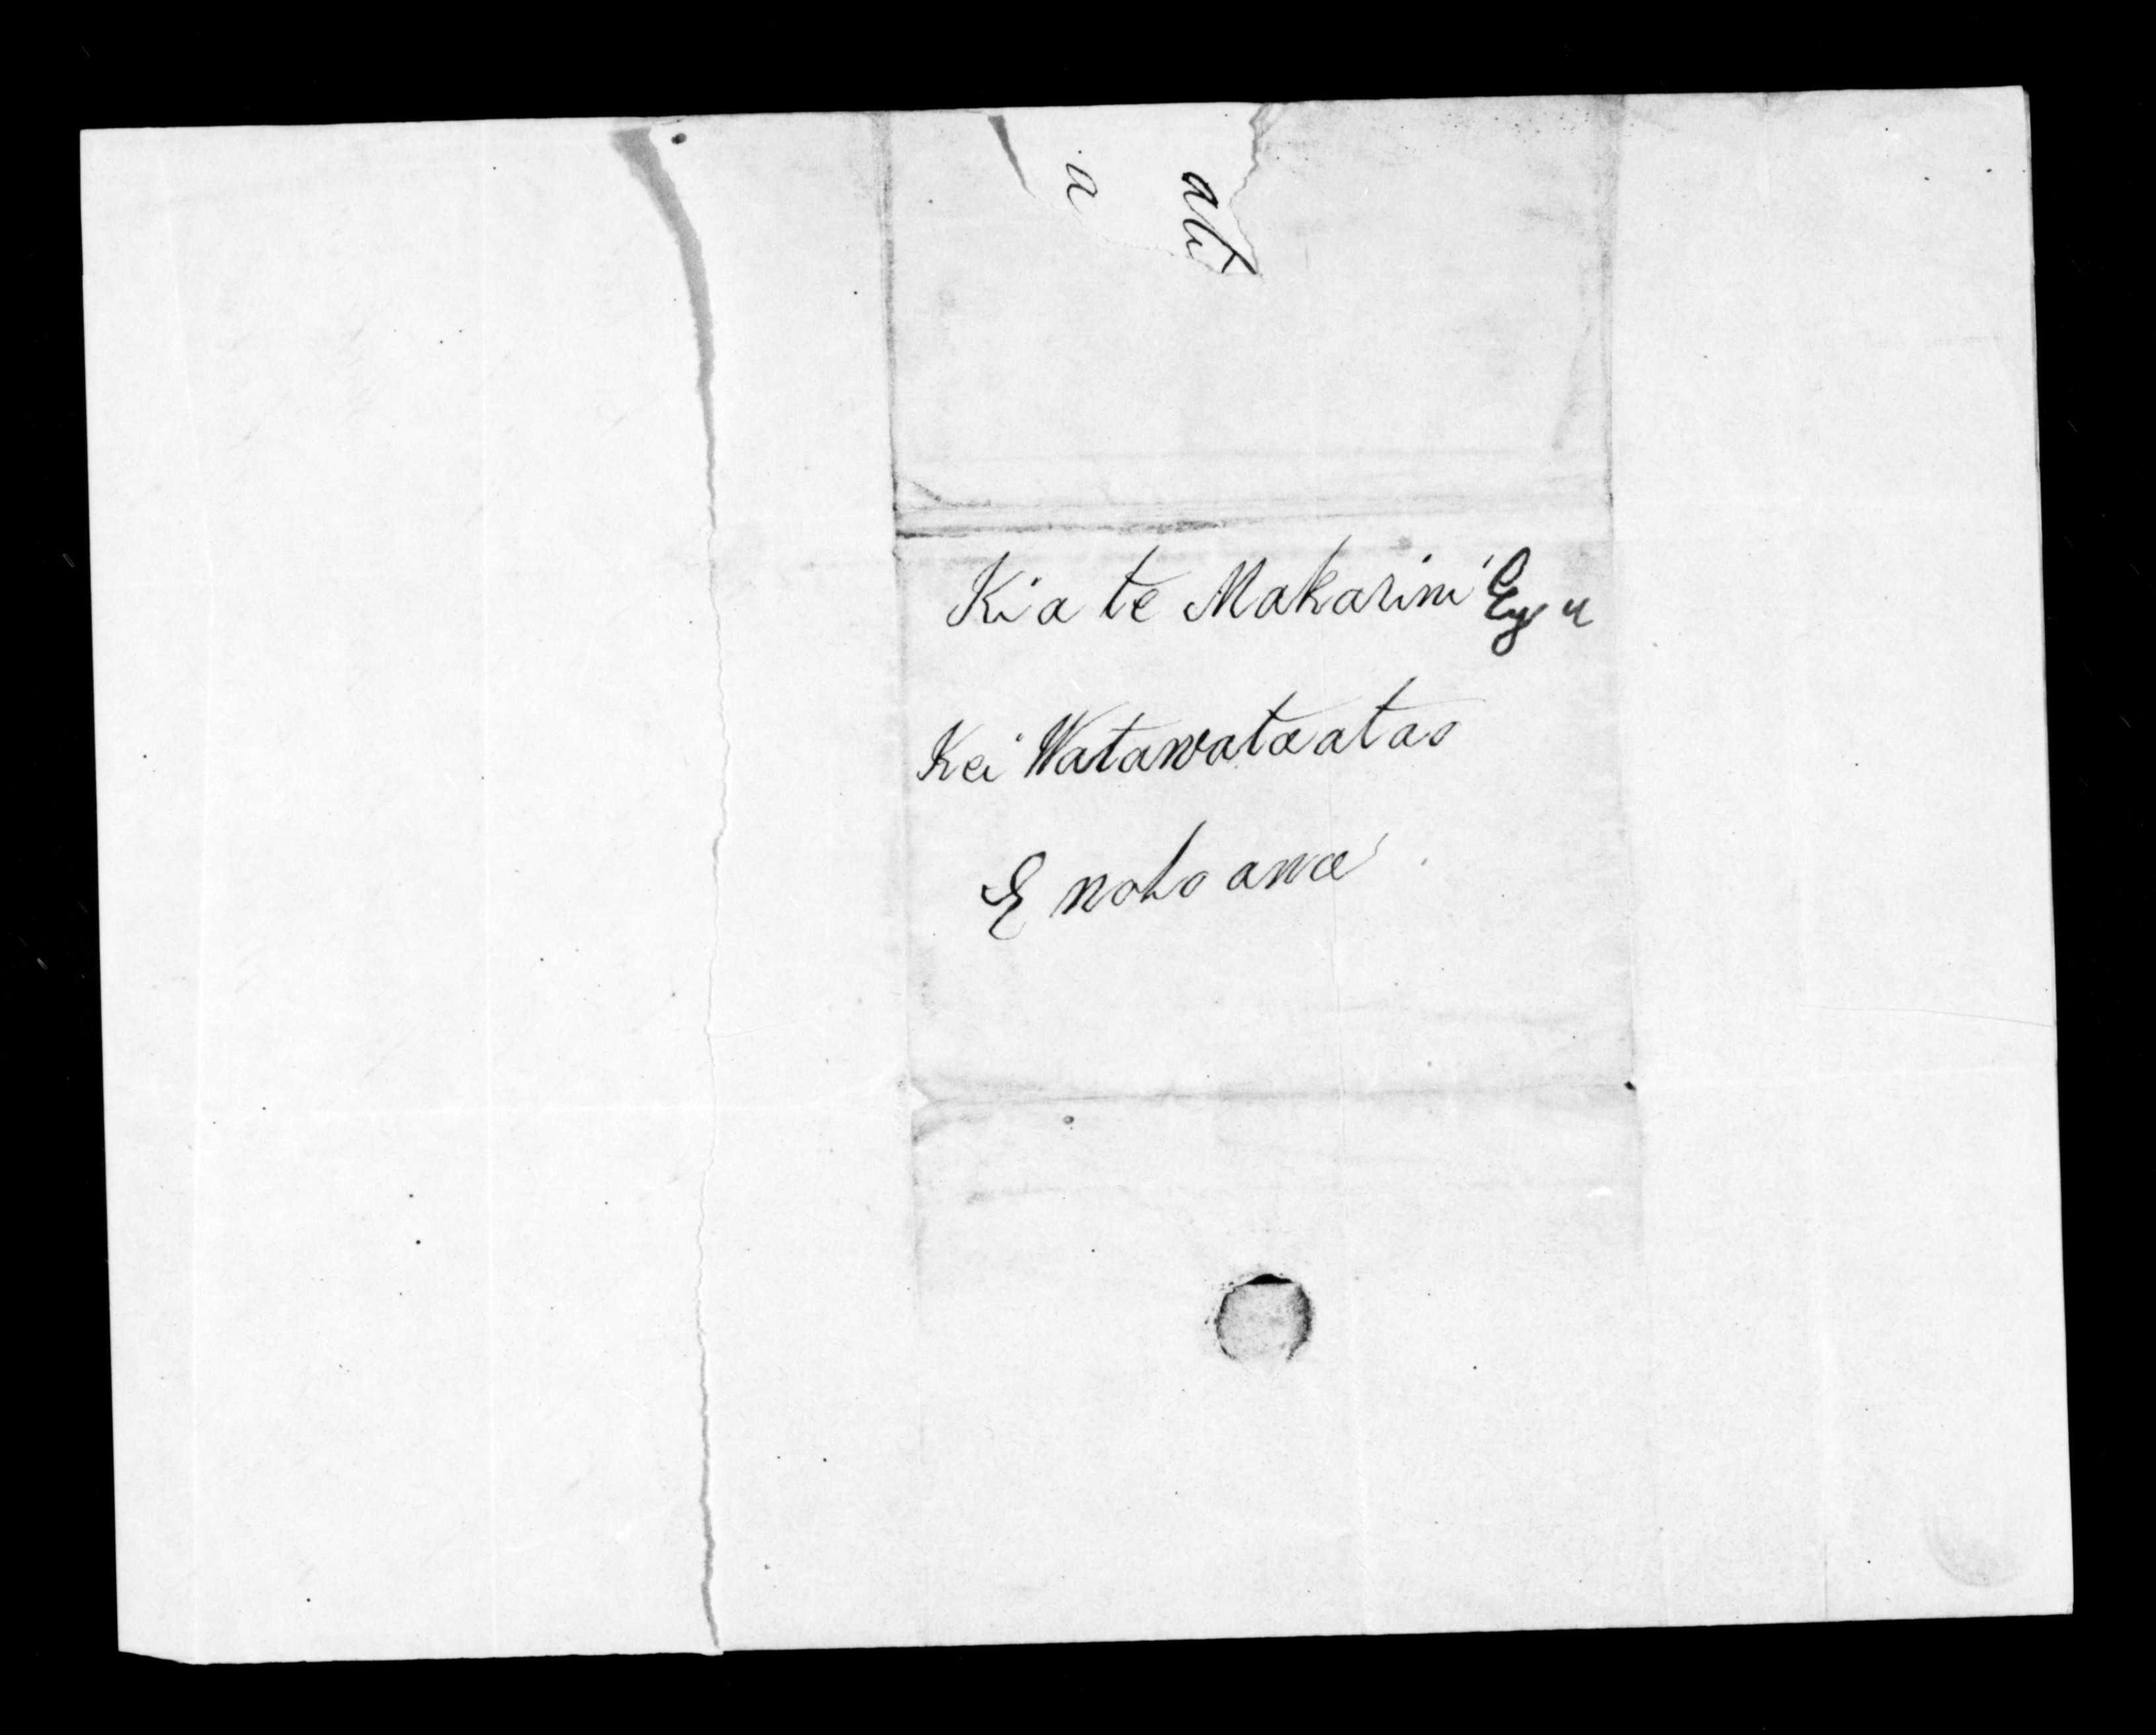 a
Kia te Makarini Esqu
Kei Watawataatao
E noho ana